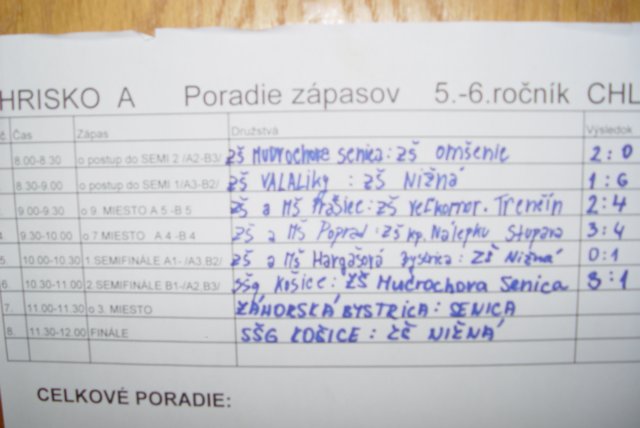 HRISKO A Poradie zápasov 5.-6.ročník CHL
Čas Zápas Družstvá Výsledok
8.00-8.30 o postup do SEMI 2 /A2-B3/ ZŠ Mudrochova Senica : ZŠ Omšenie 2:0
8.30-9.00 o postup do SEMI 1/A3-B2/ ZŠ VALALIKY : ZŠ NIŽNÁ 1:6
9.00-9.30 o 9. MIESTO A 5 -B 5 ZŠ a MŠ : ZŠ Veľkomor. Trenčín 2:4
4. 9.30-10.00 o 7.MIESTO A 4 -B 4 ZŠ a MŠ Poprad : ZŠ kp. Nálepku Stupava 3:4
5. 10.00-10.30 1.SEMIFINÁLE A1- /A3,B2/ ZŠ a MŠ Hargašova Bystrica : ZŠ Nižná 0:1
6. 10.30-11.00 2.SEMIFINÁLE B1-/A2,B3/ SŠG Košice : ZŠ Mudrochova Senica 3:1
7. 11.00-11.30 o 3. MIESTO ZÁHORSKÁ BYSTRICA : SENICA
8. 11.30-12.00 FINÁLE SŠG KOŠICE : ZŠ NIŽNÁ
CELKOVÉ PORADIE: